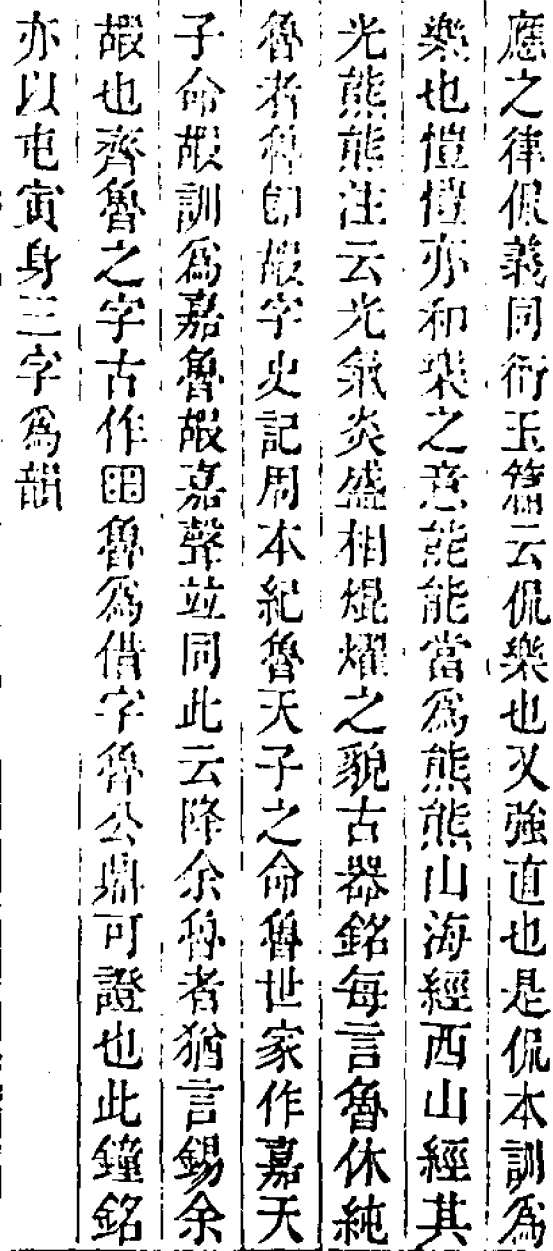 應之律侃義同衎玉篇云侃樂也又強直也是侃本訓爲
樂也愷愷亦和樂之意能能當爲熊熊山海經西山經其
光熊熊注云光氣炎盛相焜燿之貌古器銘每言魯休純
魯者魯卽嘏字史記周本紀魯天子之命魯世家作嘉天
子命嘏訓爲嘉魯嘏嘉聲竝同此云降余魯者猶言錫余
嘏也齊魯之字古作魯爲借字魯公鼎可證也此鐘銘
亦以屯寅身三字爲韻